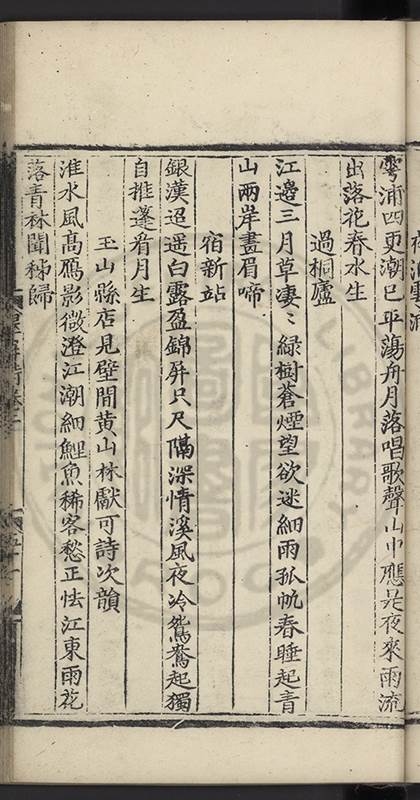 雩浦四更潮已平蕩舟月落唱歌聲山中應是夜來雨流
出落花春水生
過桐廬
江邊三月草凄〻綠樹蒼煙望欲迷細雨孤帆春睡起青
山兩岸畫眉啼
宿新站
銀漢迢遥白露盈錦屏只尺隔深情溪風夜冷鴛鴦起獨
自推蓬看月生
玉山縣店見壁間黃山林獻可詩次韻
淮水風高鴈影微澄江潮細鯉魚稀客愁正怯江東雨花
落青林聞秭歸